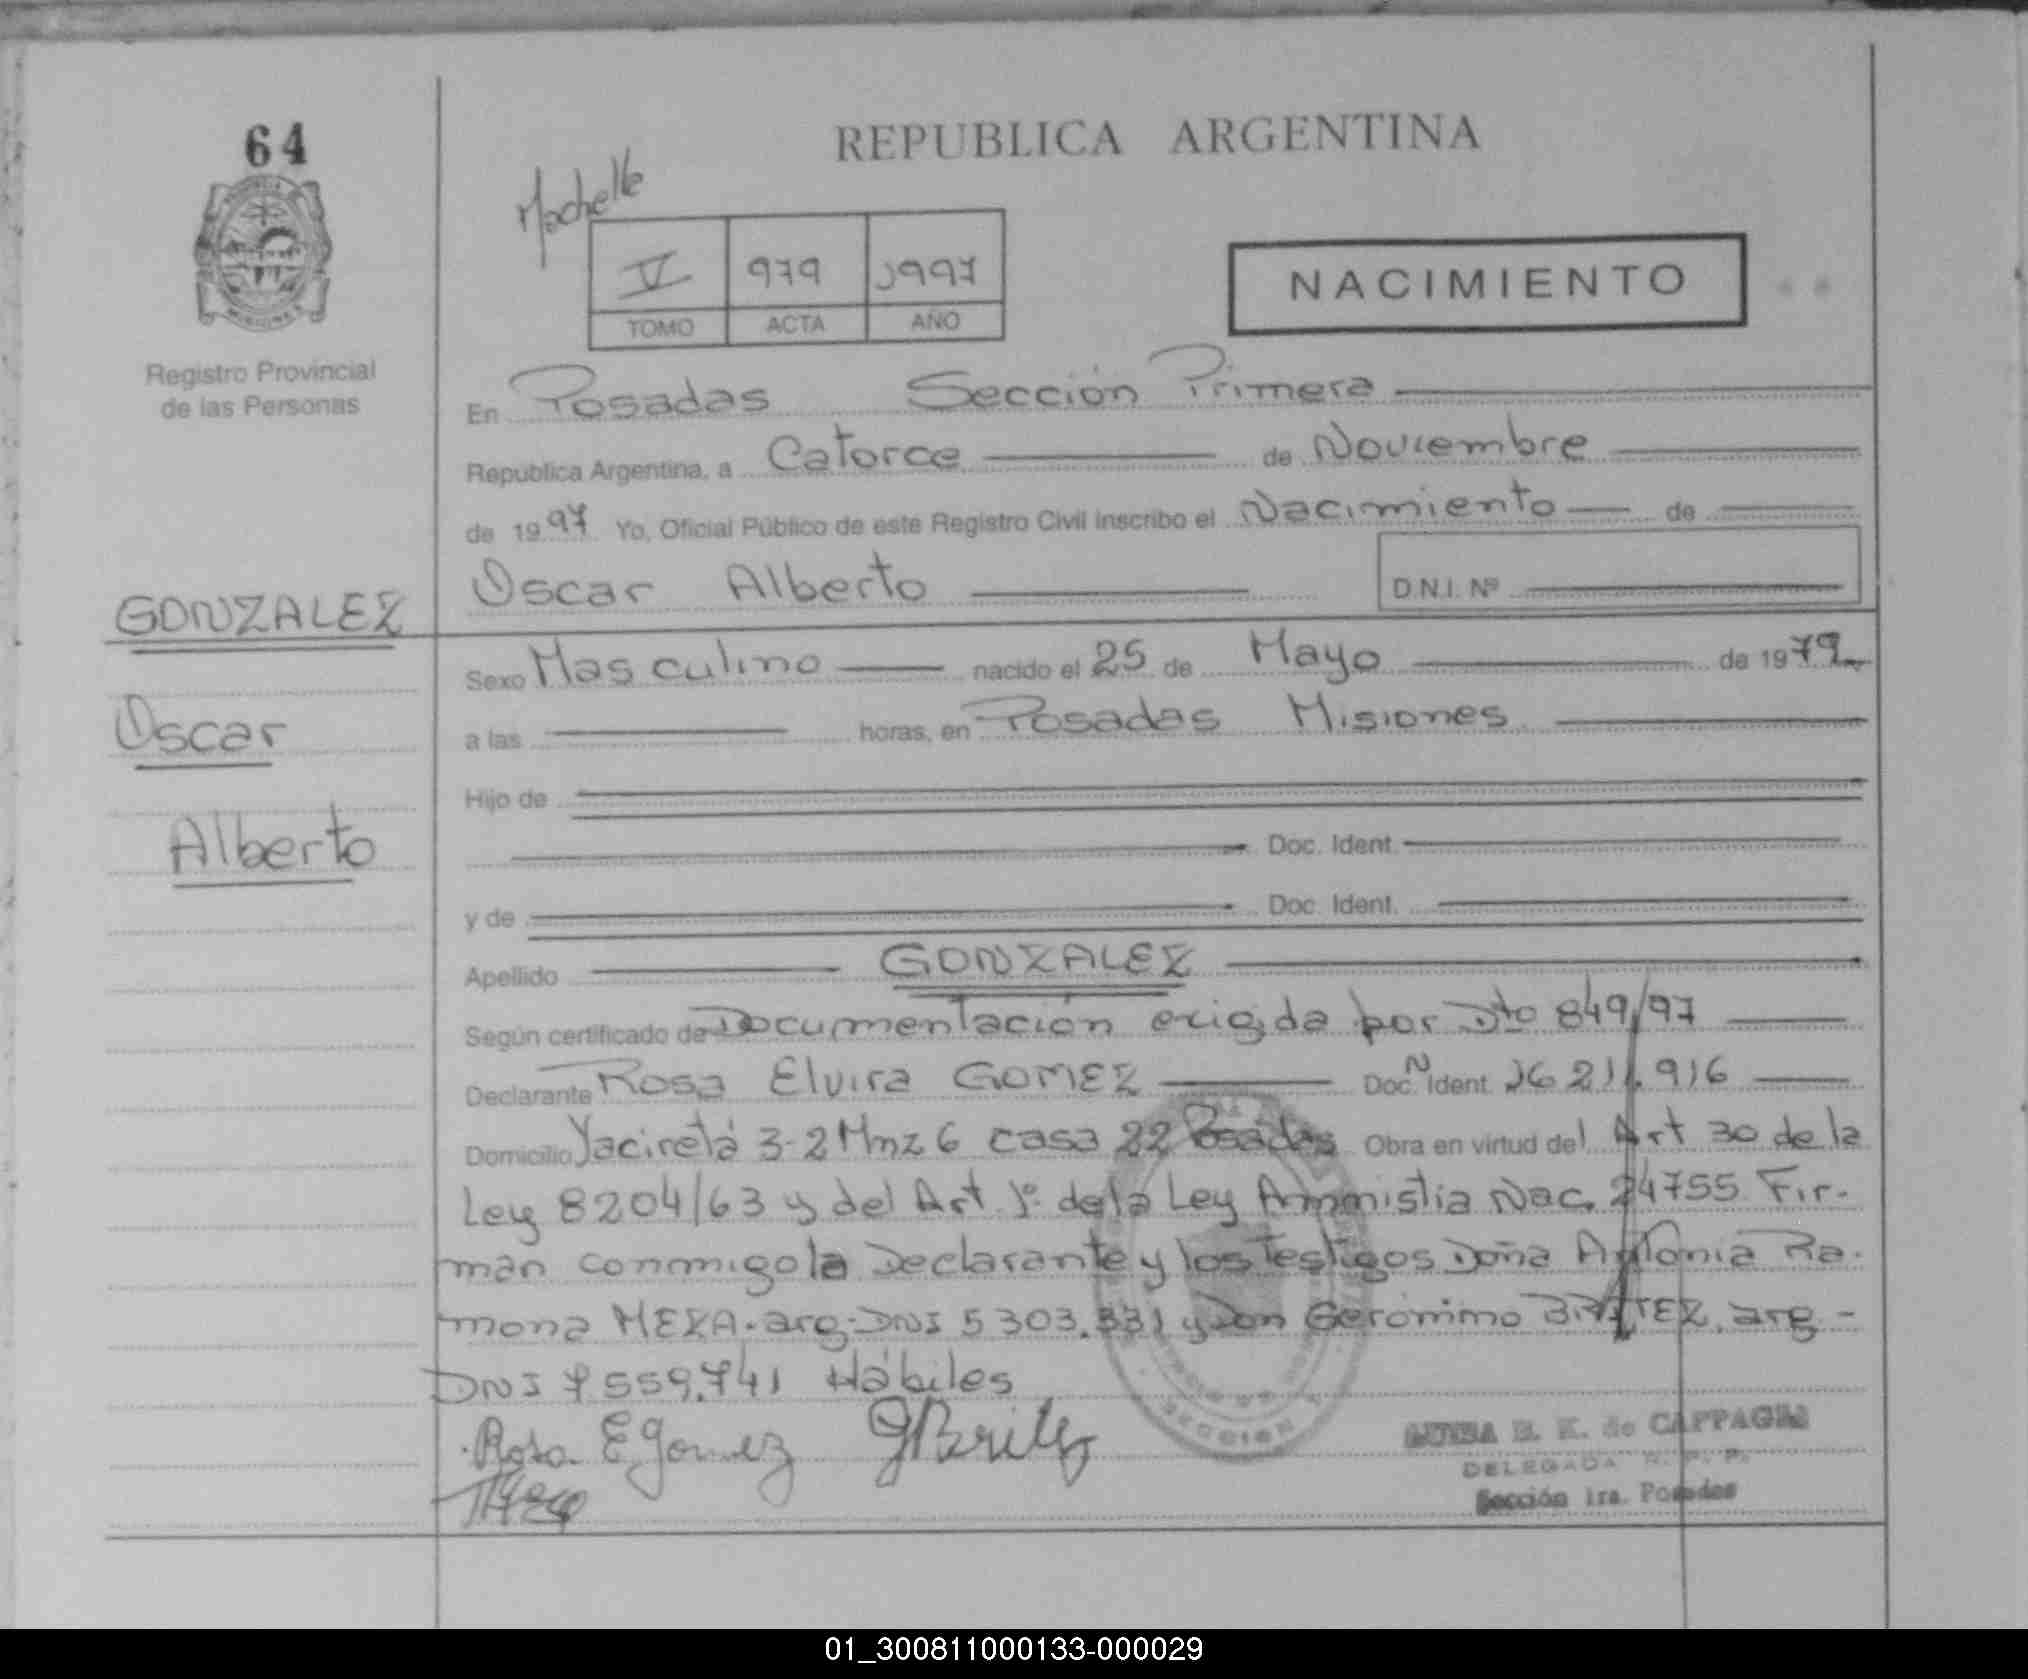 64
REPUBLICA ARGENTINA
V 979 1997
TOMO ACTA AÑO
NACIMIENTO
Registro Provincial
de las Personas
En Posadas Sección Primera
Republica Argentina, a Catorce de Noviembre
de 1997 Yo, Oficial Público de este Registro Civil inscribo el Nacimiento de
Oscar Alberto D.N.I. Nº
GONZALEZ
Oscar
Alberto
Sexo Masculino nacido el 25 de Mayo de 1979
a las horas, en Posadas Misiones
Hijo de
Doc. Ident.
y de Doc. Ident.
Apellido GONZALEZ
Según certificado de Documentación exigida por Dto 849/97
Declarante Rosa Elvira GOMEZ Doc. Ident. 16 211.916
Domicilio Yaciretá 3-2 Mnz 6 casa 22 Posadas Obra en virtud del Art 30 de la
Ley 8204/63 y del Art. 1º de la Ley Ammistia Nac. 24755 Fir-
man conmigo la Declarante y los Testigos Doña Antonia Ra-
mona MEZA. arg. DNI 5 303.331 y Don Gerónimo BRITEZ. arg -
DNI 7 559.741 Hábiles
Rosa E Gomez GBritez
E. K. de CAPPAGLI
DELEGADA R. P. P.
Sección 1ra. Posadas
01_300811000133-000029